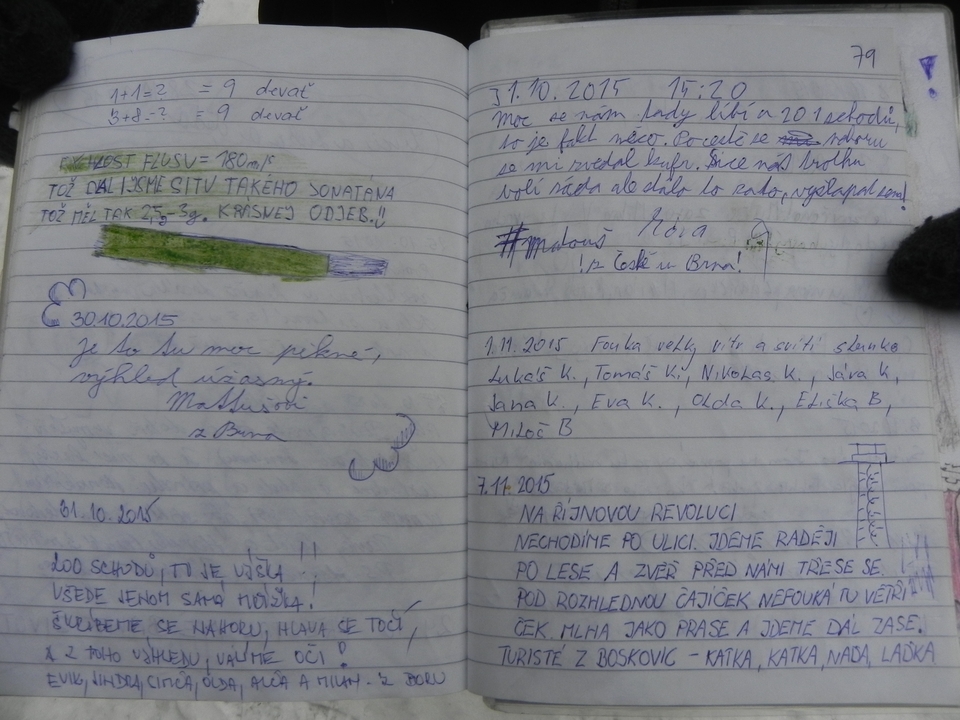 1+1=2 = 9 devať
3+8=? = 9 devať
RYCHLOST FLUSU = 180m/s
TOŽ DALI JSME SITU TAKÉHO JONATÁNA
TOŽ MĚL TAK 2,5g-3g. KRÁSNEJ ODJEB.!!
30.10.2015
Je to tu moc pěkné,
výhled úžasný.
Matušovi
z Brna
31.10.2015
200 SCHODŮ, TO JE VÝŠKA !!
VŠEDE JENOM SAMÁ
SE NAHORU, HLAVA SE TOČÍ,
A Z TOHO VÝHLEDU, VALÍME OČI!
EVIK, JINDRA, SIMČA, OLDA, A MILAN - Z BORU
79
31.10.2015 15:20
Moc se nám tady líbí a 201 schodů,
to je fakt něco. Po cestě se nahoru
se mi zvedal kufr. Sice nás trošku
ale dálo to za to,
#matouš
!z České u Brna!
1.11.2015 Fouka velky vitr a sviti slunko
Lukáš K., Tomáš K., Nikolas K., Jára K,
Jana K., Eva K., Olda K., Eliška B,
Miloš B
7.11.2015
NA ŘÍJNOVOU REVOLUCI
NECHODÍME PO ULICI. JDEME RADĚJI
PO LESE A ZVĚŘ PŘED NÁMI TŘESE SE.
POD ROZHLEDNOU ČAJÍČEK NEFOUKÁ TU VĚTŘÍ
ČEK. MLHA JAKO PRASE A JDEME DÁL ZASE.
TURISTÉ Z BOSKOVIC - KATKA, KATKA, NAĎA, LAĎKA